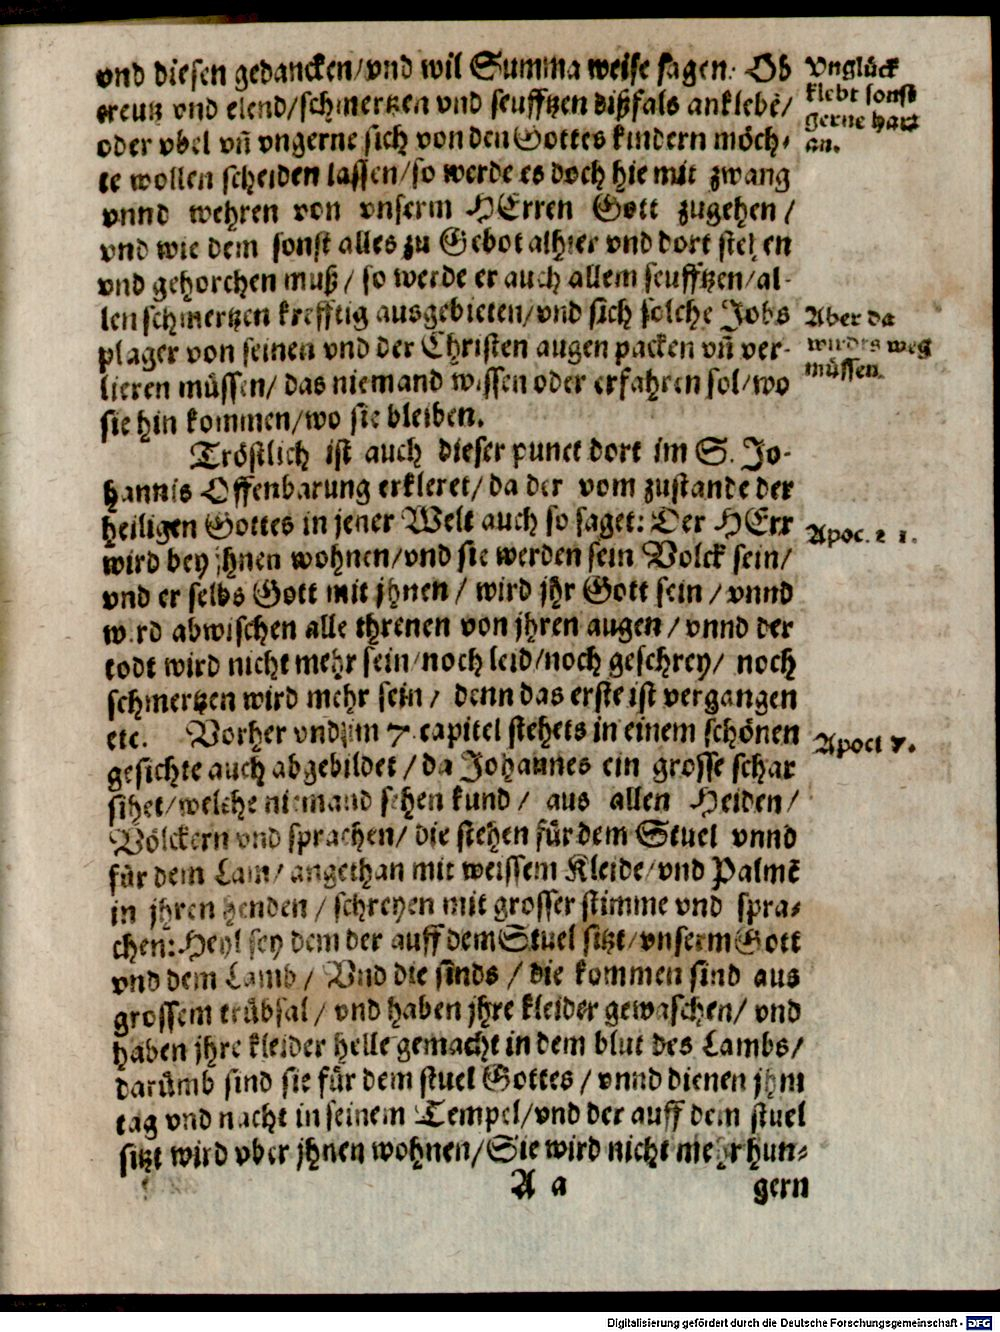 vnd diesen gedancken/vnd wil Summa weise sagen. Ob
creutz vnd elend/schmertzen vnd seufftzen dißfals anklebē/
oder vbel vñ vngerne sich von den Gottes kindern möch-
te wollen scheiden lassen/so werde es doch hie mit zwang
vnnd wehren von vnserm HErren Gott zugehen/
vnd wie dem sonst alles zu Gebot alhier vnd dort stehen
vnd gehorchen muß/ so werde er auch allem seufftzen/al-
len schmertzen krefftig ausgebieten/vnd sich solche Jobs
plager von seinen vnd der Christen augen packen vñ ver-
lieren müssen/ das niemand wissen oder erfahren sol/wo
sie hin kommen/wo sie bleiben.
Vnglück
klebt sonst
gerne hart
an.
Aber da
wirdes weg
müssen.
Tröstlich ist auch dieser punct dort im S. Jo-
hannis Offenbarung erkleret/da der vom zustande der
heiligen Gottes in jener Welt auch so saget: Der HErr
wird bey jhnen wohnen/vnd sie werden sein Volck sein/
vnd er selbs Gott mit jhnen/ wird jhr Gott sein/vnnd
wird abwischen alle threnen von jhren augen/vnnd der
todt wird nicht mehr sein/noch leid/noch geschrey/ noch
schmertzen wird mehr sein/ denn das erste ist vergangen
etc. Vorher vnd im 7. capitel stehets in einem schönen
gesichte auch abgebildet/da Johannes ein grosse schar
sihet/welche niemand sehen kund/ aus allen Heiden/
Völckern vnd sprachen/ die stehen für dem Stuel vnnd
für dem Lam/ angethan mit weissem Kleide/vnd Palmē
in jhren henden/ schreyen mit grosser stimme vnd spra-
chen: Heyl sey dem der auff dem Stuel sitzt/vnserm Gott
vnd dem Lamb/ Vnd die sinds/ die kommen sind aus
grossem trübsal/ vnd haben jhre kleider gewaschen/ vnd
haben jhre kleider helle gemacht in dem blut des Lambs/
darümb sind sie für dem stuel Gottes/vnnd dienen jhm
tag vnd nacht in seinem Tempel/vnd der auff dem stuel
sitzt wird vber jhnen wohnen/Sie wird nicht mehr hun-
Apoc. 21.
Apoct 7.
A a gern
Digitalisierung gefördert durch die Deutsche Forschungsgemeinschaft - DFG